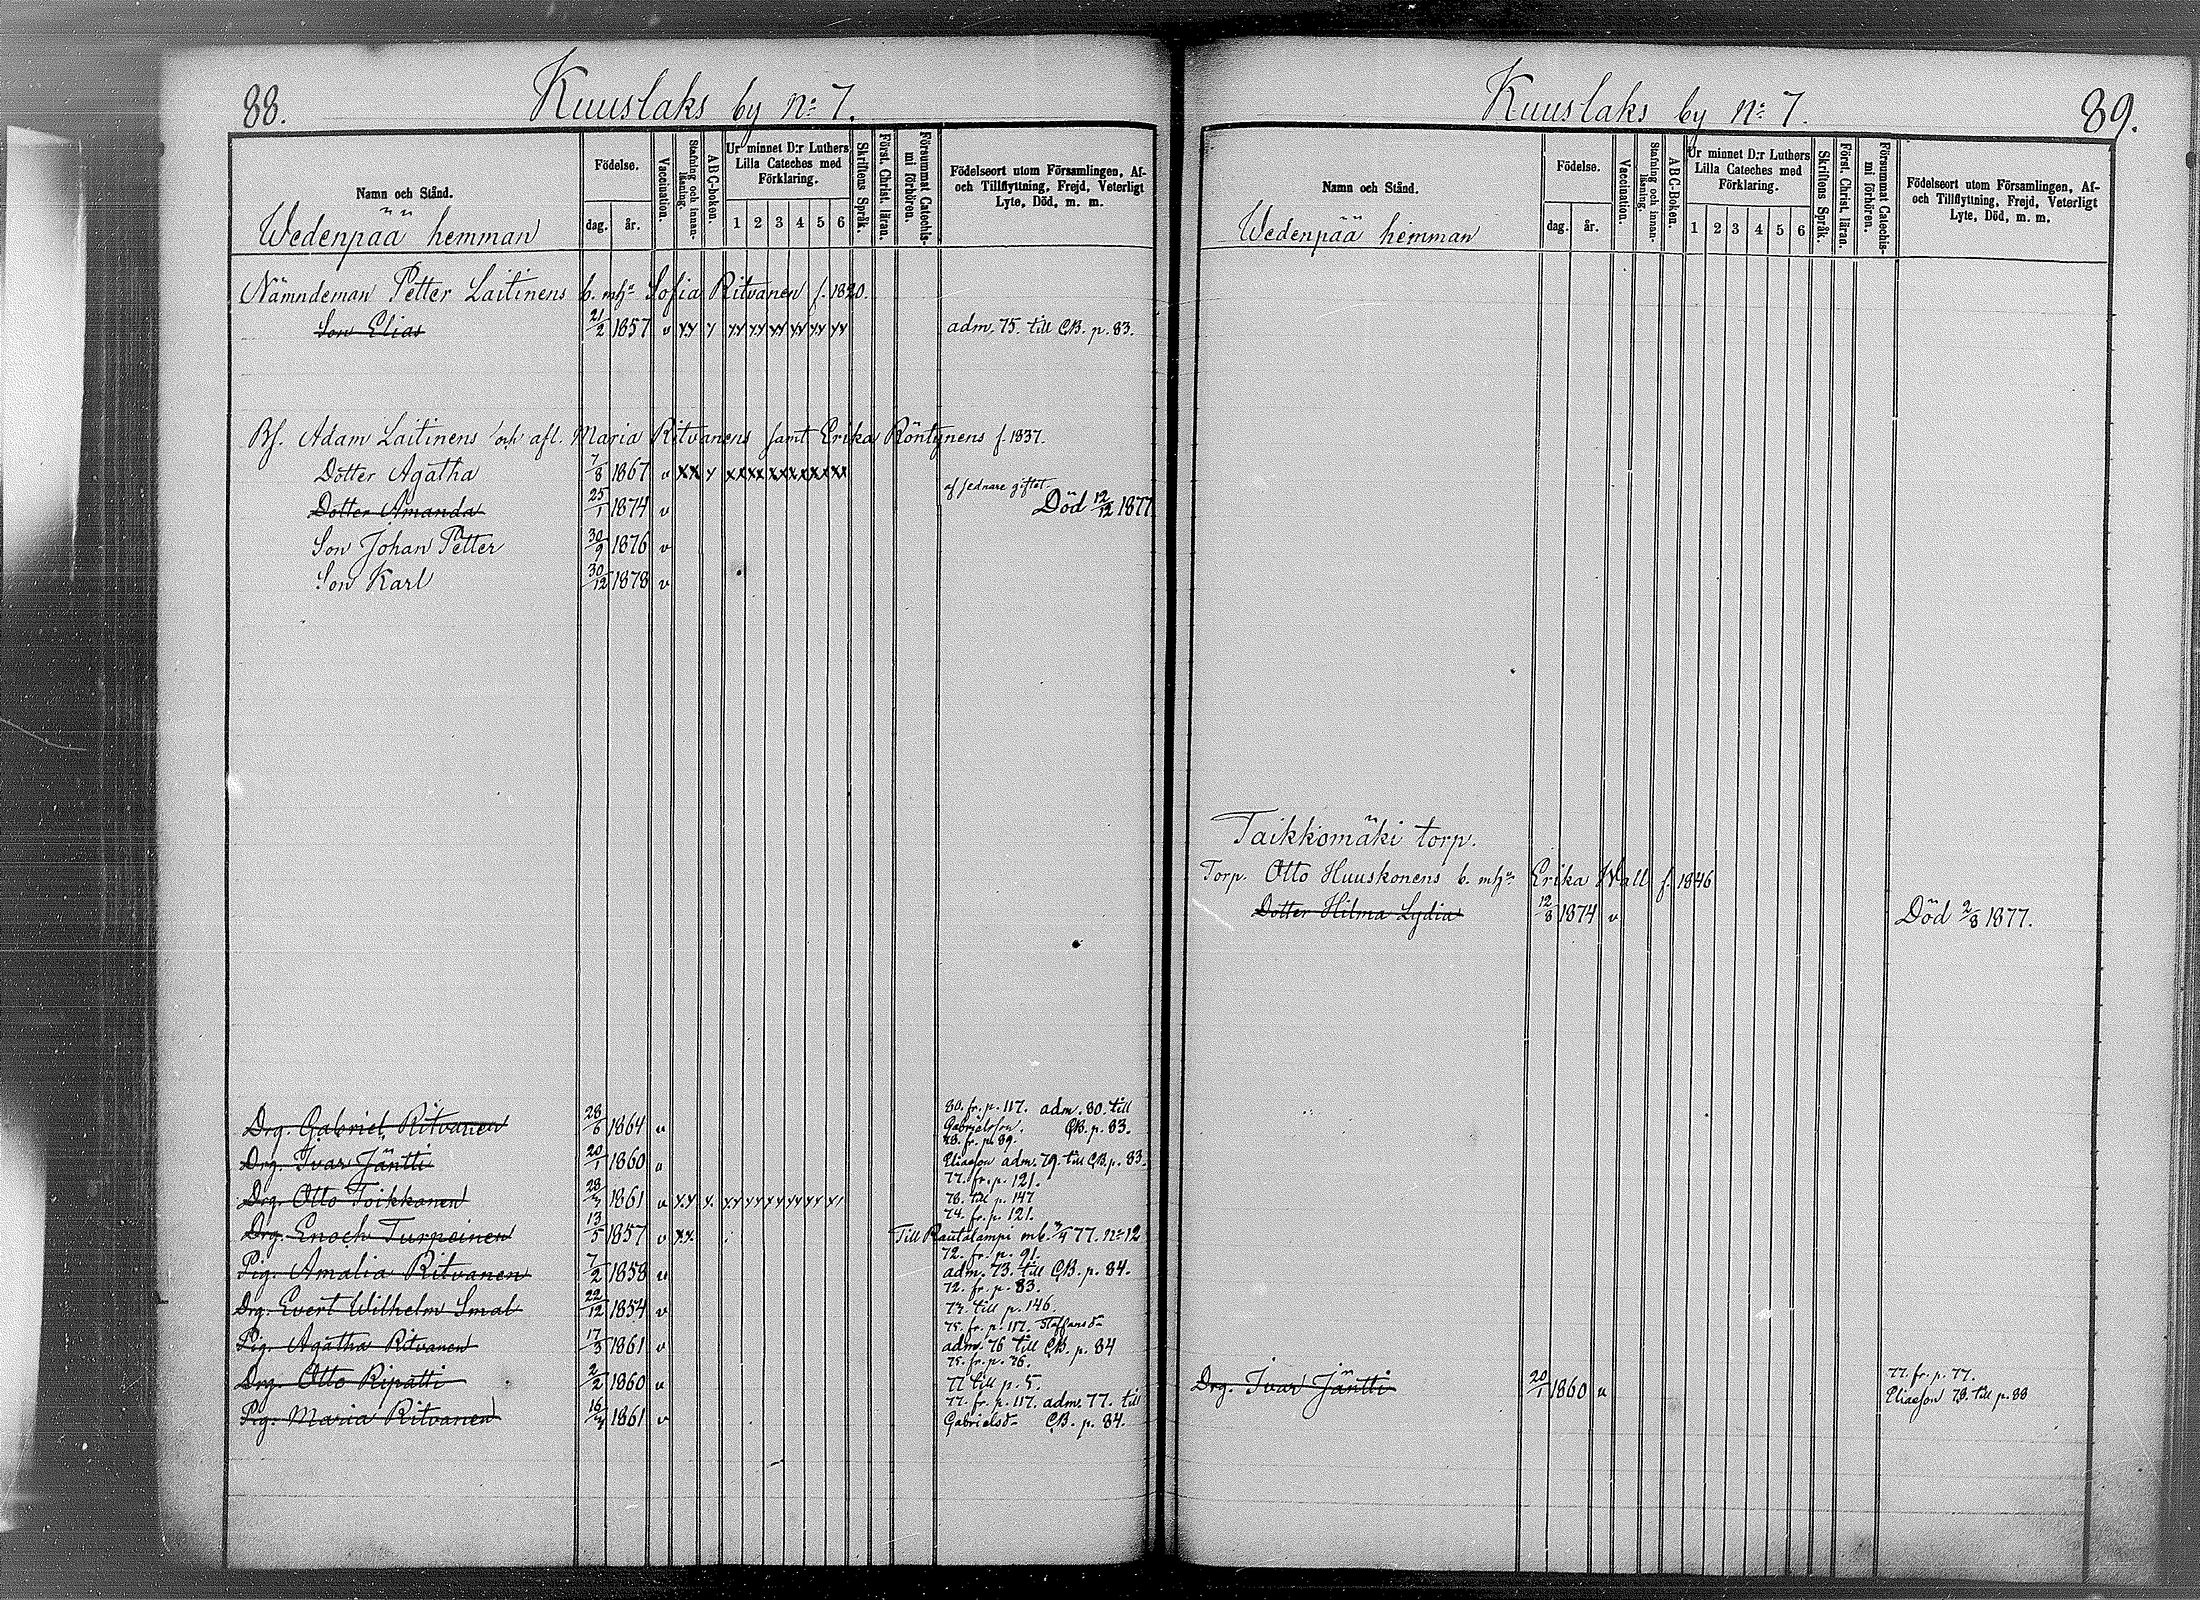 88.
Kuuslaks by No 7.
Namn och Stånd.
Wedenpää hemman
Födelse.
dag. år.
Vaccination.
Stafning och innanläsning.
ABC-boken.
Ur minnet D:r Luthers Lilla Cateches med Förklaring.
1 2 3 4 5 6
Skriftens Språk.
Först. Christ. läran.
Försummat Catechismi förhören.
Födelseort utom Församlingen, Af- och Tillflyttning, Frejd, Veterligt Lyte, Död, m. m.
Nämndeman Petter Laitinens b. mhu Sofia Ritvanen f. 1820.
Son Elias 21/2 1857 v xx x xx xx xx xx xx xx adm. 75. till CB. p. 83.
Bf. Adam Laitinens och afl. Maria Ritvanens samt Erika Röntynens f. 1837.
Dotter Agatha 7/8 1867 v xx x xx xx xx xx xx xx
af sednare giftet.
Dotter Amanda 25/1 1874 v Död 12/12 1877
Son Johan Petter 30/9 1876 v
Son Karl 30/12 1878 v
80. fr. p. 117. adm. 80. till
Drg. Gabriel Ritvanen 28/6 1864 v Gabrielsson. CB. p. 83.
78. fr. p. 89.
Drg. Ivar Jäntti 20/1 1860 v Eliasson adm. 79. till CB. p. 83.
77. fr. p. 121.
Drg. Otto Toikkanen 28/7 1861 v x.x x. xx xx xx xx xx x1 78. till p. 147
74. fr. p. 121.
Drg. Enoch Turpeinen 13/5 1857 v xx. Till Rautalampi mb. 77. No 12
72. fr. p. 91.
Pig. Amalia Ritvanen 7/2 1858 v adm. 73. till CB. p. 84.
72. fr. p. 83.
Drg. Evert Wilhelm Smal 22/12 1854 v 73. till p. 146.
75. fr. p. 117. Staffansdr
Pig. Agatha Ritvanen 17/3 1861 v adm. 76 till CB. p. 84
75. fr. p. 76.
Drg. Otto Ripatti 2/2 1860 v 77 till p. 5.
77. fr. p. 117. adm. 77. till
Pig. Maria Ritvanen 16/7 1861 v Gabrielsdr CB. p. 84.
Kuuslaks by No 7.
89.
Namn och Stånd.
Wedenpää hemman
Födelse.
dag. år.
Vaccination.
Stafning och innanläsning.
ABC-boken.
Ur minnet D:r Luthers Lilla Cateches med Förklaring.
1 2 3 4 5 6
Skriftens Språk.
Först. Christ. läran.
Försummat Catechismi förhören.
Födelseort utom Församlingen, Af- och Tillflyttning, Frejd, Veterligt Lyte, Död, m. m.
Taikkomäki torp.
Torp. Otto Huuskonens b. mhu Erika Wall f. 1846
Dotter Hilma Lydia 12/8 1874 v Död 2/8 1877.
77. fr. p. 77.
Drg. Ivar Jäntti 20/1 1860 v Eliasson 78. till p. 88